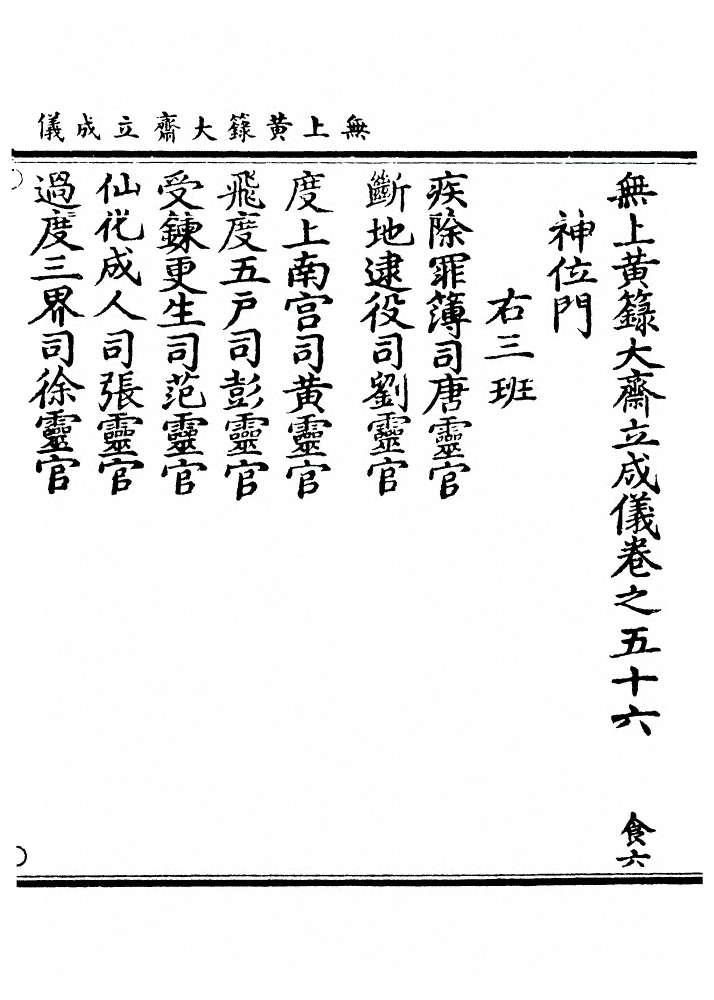 無上黃籙大齋立成儀
無上黃籙大齋立成儀卷之五十六 食六
神位門
右三班
疾除罪簿司唐靈官
斷地逮役司劉靈官
度上南宮司黃靈官
飛度五戶司彭靈官
受鍊更生司范靈官
仙化成人司張靈官
過度三界司徐靈官